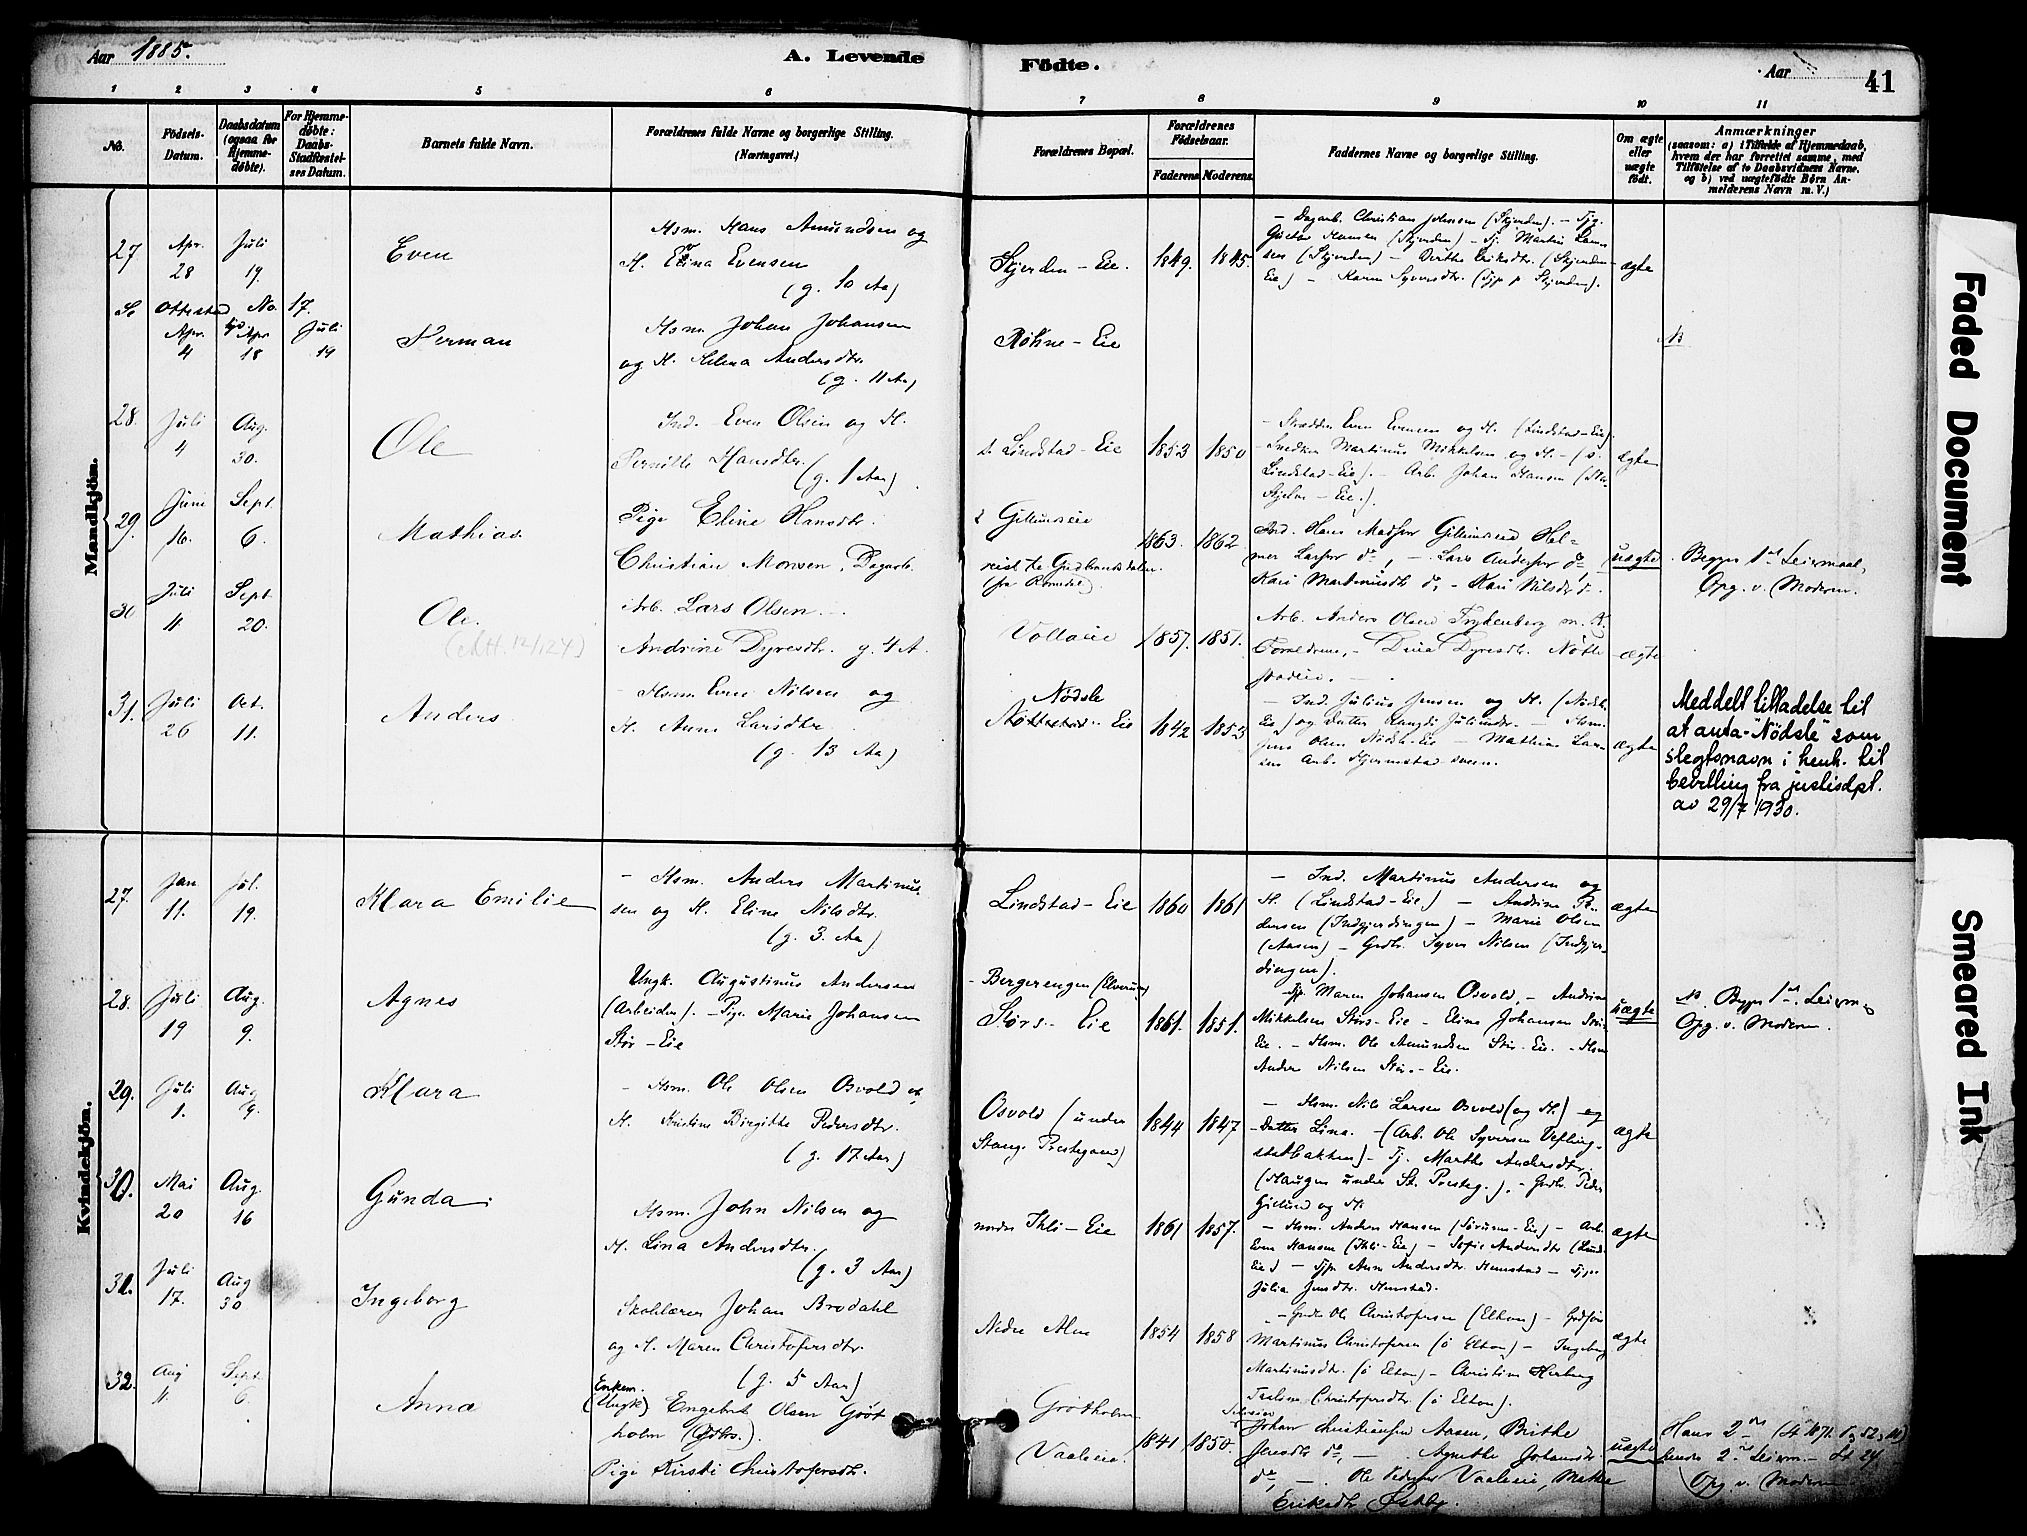 Aar 1885.
A. Levende
Födte.
Aar
41
1 2 3 4 5 6 7 8 9 10 11
No.
Födsels-
Datum.
Daabsdatum
(ogsaa for
Hjemme-
døbte).
For Hjemme-
døbte:
Daabs-
Stadfæstel-
ses Datum.
Barnets fulde Navn.
Forældrenes fulde Navne og borgerlige Stilling.
(Næringsvei.)
Forældrenes Bopæl.
Forældrenes
Födselsaar.
Faderens Moderens
Faddernes Navne og borgerlige Stilling.
Om ægte
eller
uægte
født.
Anmærkninger
(saasom: a) i Tilfælde af Hjemmedaab,
hvem der har forrettet samme, med
Tilføielse af to Daabsvidners Navne.
og b) ved uægtefødte Börn An-
melderens Navn m. V.)
Mandkjön.
27
Apr.
28
Juli
19.
Even
Hsm. Hans Amundsen og
H. Elina Evensen
(g. 10 Aa)
Skjerden - Eie.
1849. 1845.
- Dagarb. Christian Johnsen (Skjerden). - Tjg.
Gustav Hansen (Skjerden) - Tj. Martin Lar-
sen (Skjerden) - Berthe Eriksdtr. (Skjerden-
Eie) - Karen Syversdtr. (Tjp. p. Skjerden).
ægte
Se Ottestad No. 17.
Apr.
4
Apr
18
Juli
19
Herman
Hsm. Johan Johansen
og H. Helena Andersdtr.
(g. 11 Aa)
Røhne - Eie
28.
Juli
4
Aug.
30.
Ole
Ind. Even Olsen og H.
Pernille Hansdtr.
(g. 1 Aar)
s. Lindstad - Eie
1853 1850
- Skrædder Even Evensen og H. (Lindstad-Eie).
- Snedker Martinus Mikkelsen og H. - (s.
Lindstad-Eie). - Arb. Johan Hansen
Eie.).
ægte
29.
Juni
16.
Sept.
6.
Mathias.
Pige Eline Hansdtr.
Christian Monsen, Dagarb.
Gillundseie
reist til Gudbrandsdalen.
(fra Romedal)
1863. 1862
Ind. Hans Madsen Gillundseie Hel-
mer Larsen do, - Lars Andersen do, -
Kari Martinusdtr do, - Kari Nilsdtr do.
uægte
Begges 1st Leiermaal,
Opg. v. Moderen.
30
Juli
11
Sept.
20.
Ole.
Arb. Lars Olsen.
Andrine Dyresdtr. g. 4 A.
Vollaeie
1857. 1851.
Arb. Anders Olsen Frykenberg m. H.
Forældrene, - Dina Dyresdtr. Nøtle
stadeie.
ægte
31.
Juli
26
Oct.
11.
Anders.
- Hsm. Even Nilsen og
H. Anne Larsdtr.
(g. 13 Aa)
Nödsle
Nöttestad - Eie
1842 1853
- Ind. Julius Jensen og H. (Nødsle
Eie) og Datter Raugdi Juliusdtr. - Hsm.
Jens Olsen Nødsle-Eie - Mathias Lar-
sen Arb. Hjermstad-sveen.
ægte
Meddelt tilladelse til
at anta "Nödsle" som
slegtsnavn i henh. til
bevilling fra justisdpt.
av 29/7 1930.
Kvindekjön.
27.
Jan
11.
Jul.
19.
Klara Emilie
- Hsm. Anders Martinus-
sen og H. Eline Nilsdtr.
(g. 3. Aa)
Lindstad - Eie
1860 1861
- Ind. Martinus Andersen og
H. (Lindstad-Eie) - Andrine Pe-
dersen (Indgjerdingen) - Marie Olsen
(Aasen) - Grdbr. Syver Nilsen (Indgjer-
dingen).
ægte
28.
Juli
19
Aug.
9.
Agnes
Ungk. Augustinus Andersen
(Arbeider). - Pige Marie Johansen
Stør - Eie
- Bergerengen (Elverum)
Størs - Eie
1861. 1851.
- Tjp. Maren Johansen Osvold, - Andrine
Mikkelsen Størs-Eie - Eline Johansen Størs-
Eie. - Hsm. Ole Amundsen Stør-Eie. - Hsm
Anders Nilsen Stør-Eie.
uægte
Begges 1st Leierm.
Opg. v. Moderen.
29.
Juli
1.
Aug
9.
Klara
- Hsm. Ole Olsen Osvold og
H. Kristine Birgitte Pedersdtr.
(g. 17 Aar)
Osvold (under
Stange Prestegaard)
1844 1847
- Hsm. Nils Larsen Osvold (og H.) og
- Datter Lina. - (Arb. Ole Syversen Vefling-
stadbakken) - Tj. Marthe Andersdtr.
(Haugen under St. Presteg.). - Grdb. Peder
Gjelund og H.
ægte
30.
Mai
20
Aug.
16
Gunda.
Hsm. John Nilsen og
H. Lina Andersdtr.
(g. 3 Aar)
nordre Ihli - Eie
1861 1857.
- Hsm. Anders Hansen (Sørum-Eie) - Arb.
Even Hansen (Ihli-Eie) - Sofie Andersdtr (Lund-
Eie) - Tjp. Anne Andersdtr. Hemstad - Tjp.
Julia Jensdtr. Hemstad.
ægte
31.
Juli
17.
Aug
30
Ingeborg
Skolelærer Johan Brodahl
og H. Maren Christofersdtr.
(g. 5 Aar)
Nedre Alm
1854 1858
- Grdbr Ole Christofersen (Elton) -
Martinus Christofersen (ø Elton) - Ingeborg
Martinusdtr. (ø Elton) - Christine Herberg
Christofersdtr. (ø Elton).
ægte
32.
Aug
11.
Sept.
6.
Anna
Enkem.
(Ungk) Engebret Olsen Grøt
holm (Gdbr.).
Pige Kirsti Christofersdtr.
Grøtholm
Vaaleeie.
1841 1850.
Johan Christiansen Aasen, Berthe
Jensdtr do, - Agnethe Johansdtr
do, - Ole Pedersen Vaaleeie, Mathea
Eriksdtr
uægte
Hans 2den
hendes 2det Leierm. -
Opg. v. Moderen
Faded Document
Smeared Ink